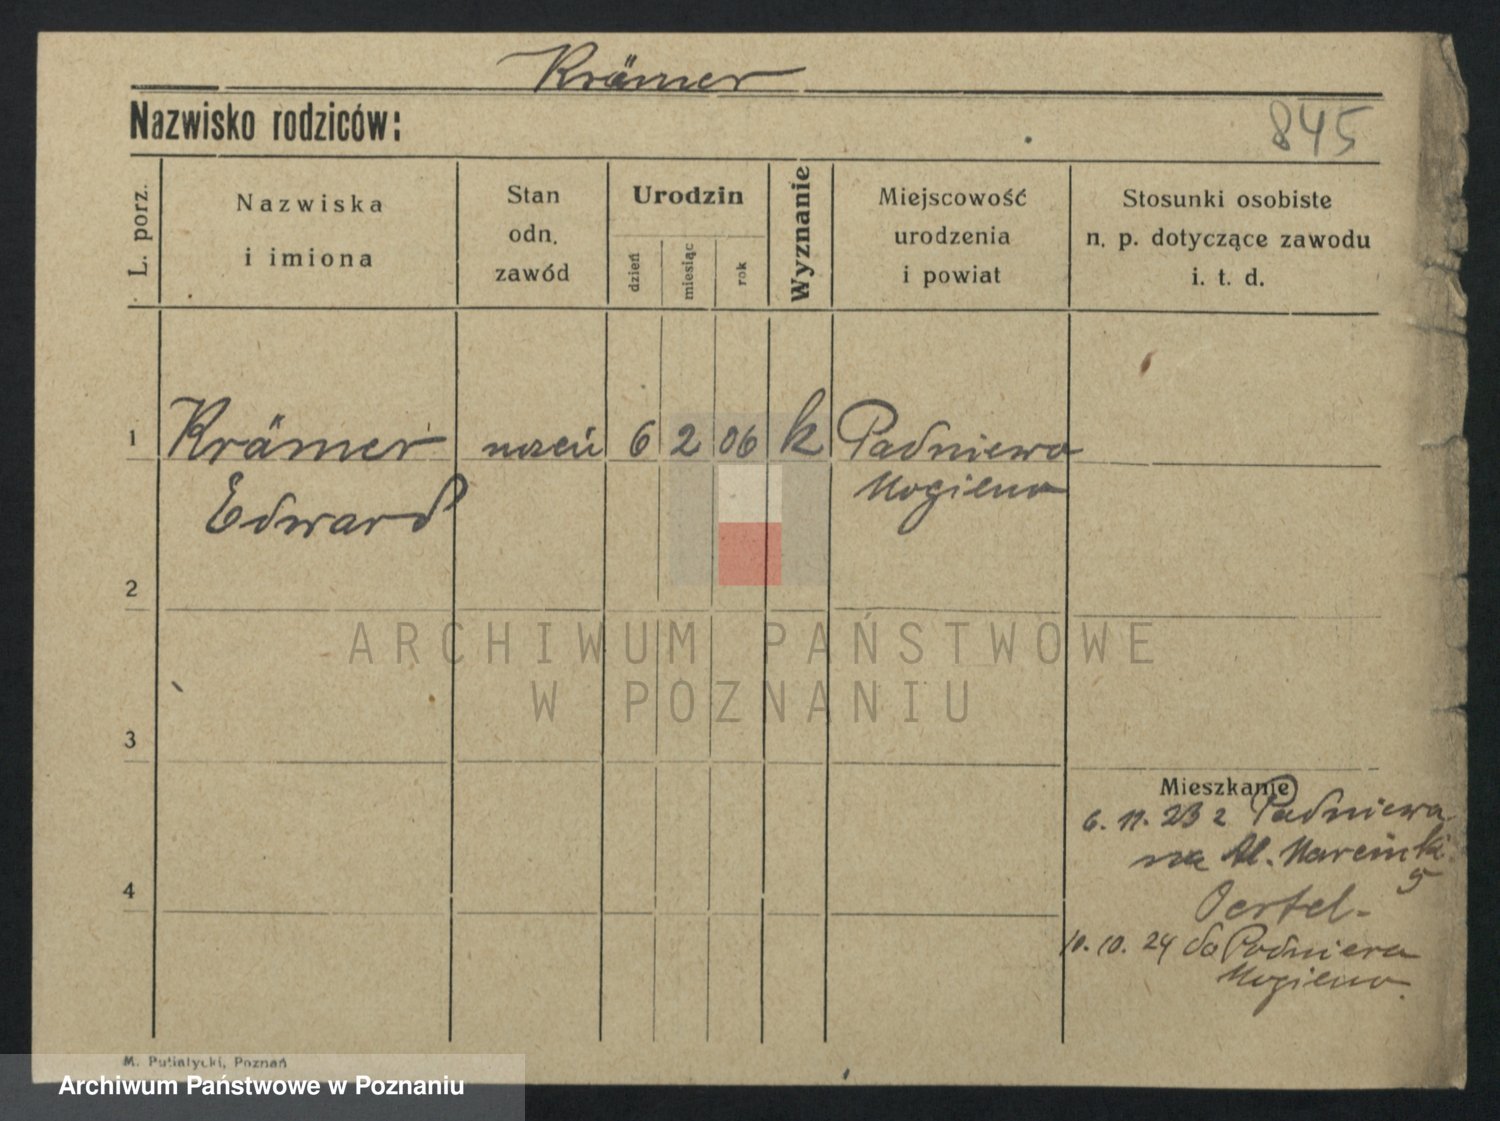 Krämer
Nazwisko rodziców:
845
L. porz.
Nazwiska
i imiona
Stan
odn.
zawód
Urodzin
dzień
miesiąc
rok
Wyznanie
Miejscowość
urodzenia
i powiat
Stosunki osobiste
n. p. dotyczące zawodu
i. t. d.
1 Krämer uczeń 6 2 06 k Padniewo
Mogilno
Edward
2
ARCHIWUM PAŃSTWOWE
W POZNANIU
3
Mieszkanie
6. 11. 23 z Padniewa
na Al. Marcink.
5
Oertel.
4
10. 10. 24 do Padniewa
Mogilno.
M. Putiatycki, Poznań
Archiwum Państwowe w Poznaniu